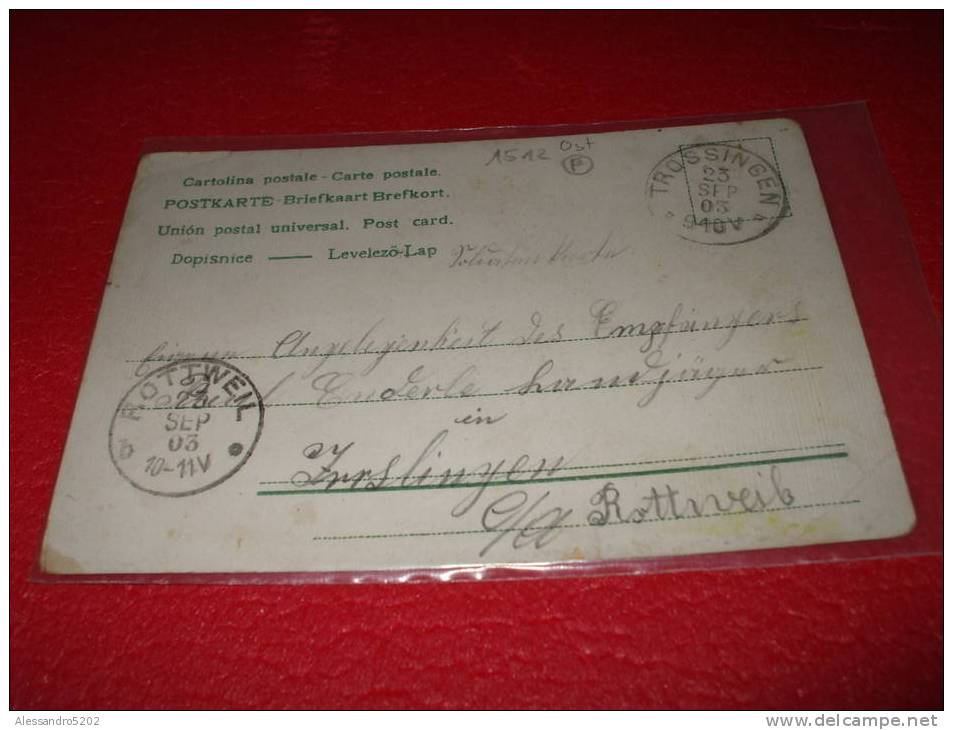 1512
Ost
F
TROSSINGEN
23
SEP
03
9-10V
Cartolina postale - Carte postale.
POSTKARTE - Briefkaart Brefkort.
Unión postal universal. Post card.
Dopisnice — Levelező-Lap
Angelegenheit des Empfängers
Enderle Landjäger
in
Irslingen
O/A Rottweil
ROTTWEIL
23
SEP
03
10-11V
Alessandro5202
www.delcampe.net